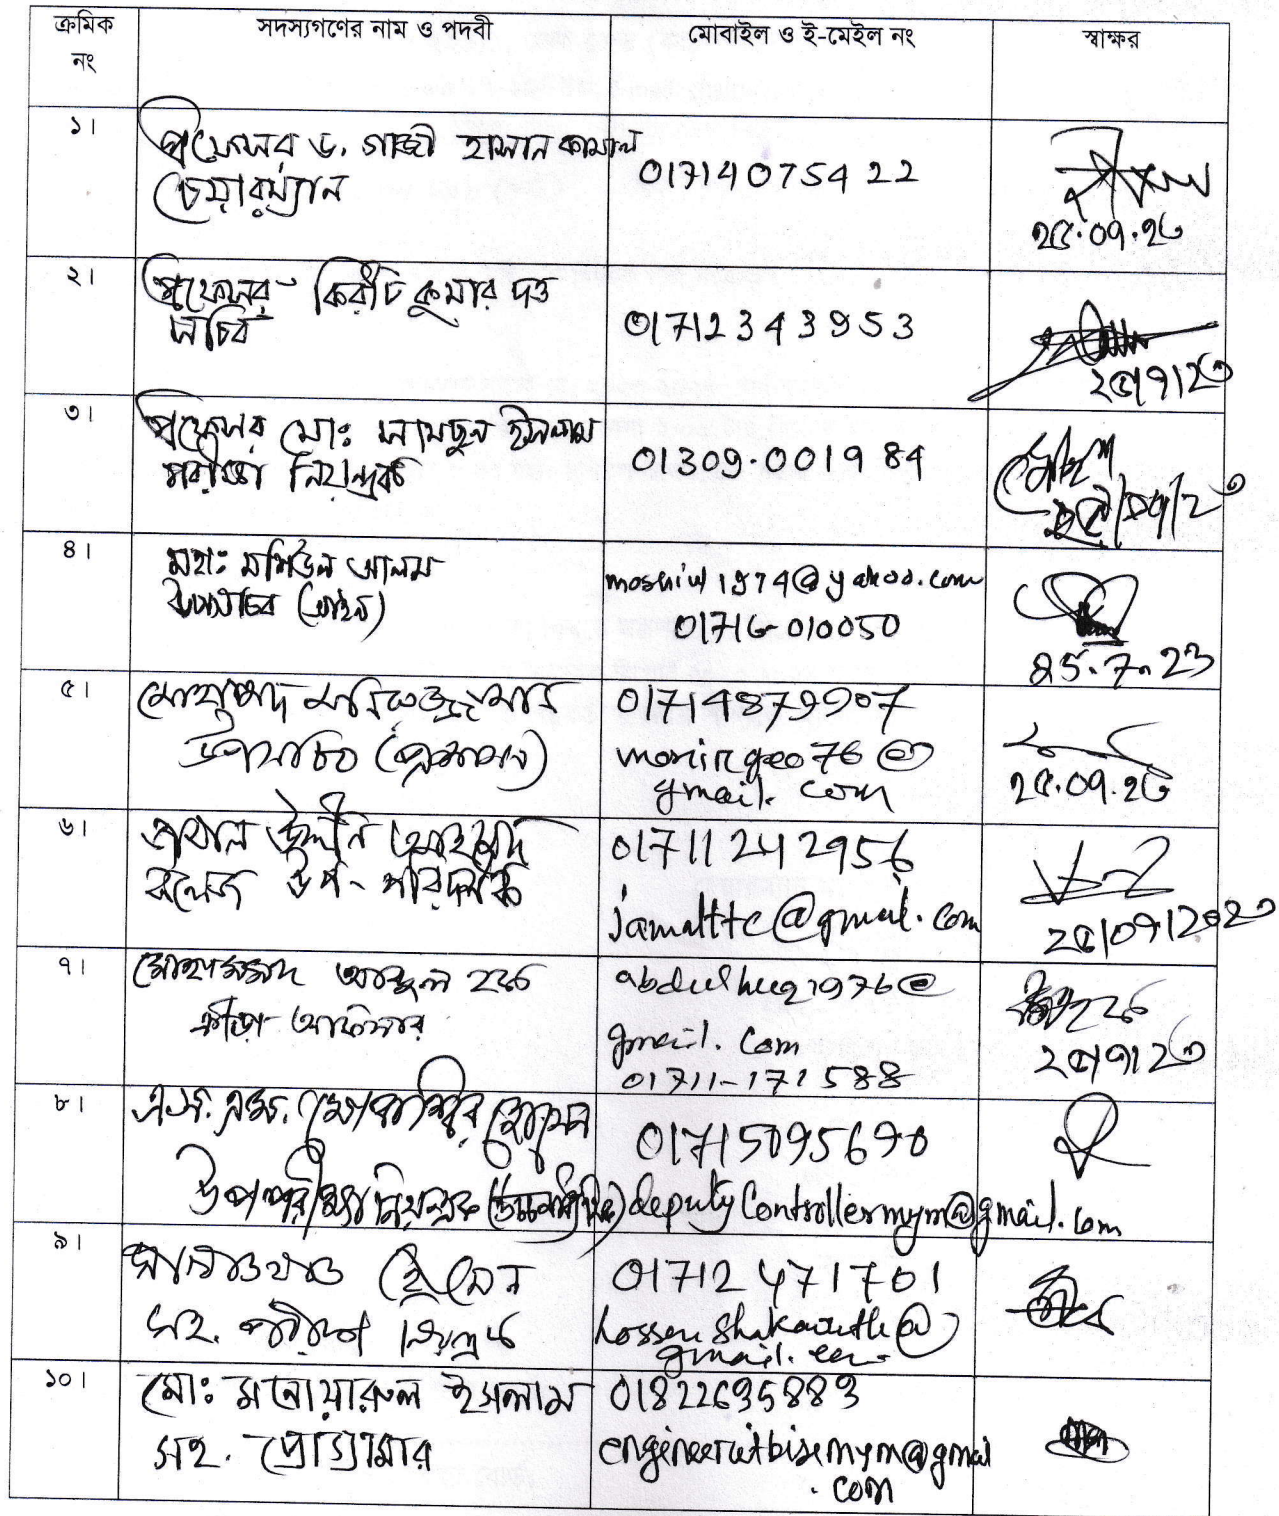 ক্রমিক নং
সদস্যগণের নাম ও পদবী
মোবাইল ও ই-মেইল নং
স্বাক্ষর
১।
প্রফেসর ড. গাজী হাসান কামাল
চেয়ারম্যান
01714075422
২৫.০৭.২৩
২।
প্রফেসর কিরীট কুমার দত্ত
সচিব
01712343953
২৫/৭/২৩
৩।
প্রফেসর মোঃ সামছুল ইসলাম
পরীক্ষা নিয়ন্ত্রক
01309-001984
২৫/০৭/২৩
৪।
মহাঃ মশিউল আলম
উপসচিব
moshiul1974@yahoo.com
01716-010050
25.7.23
৫।
মোহাম্মদ মনিরুজ্জামান
উপসচিব (প্রশাসন)
01714879907
monirgeo76@
gmail.com
২৫.০৭.২৩
৬।
জামাল উদ্দীন আহমেদ
কলেজ উপ-পরিদর্শক
01711242956
jamalttc@gmail.com
২৫/০৭/২০২৩
৭।
মোহাম্মদ আব্দুল হক
ক্রীড়া অফিসার
abdulhuq1976@
gmail.com
01711-171588
২৫/৭/২৩
৮।
এস. এম. মোকাম্মির হোসেন
উপপরীক্ষা নিয়ন্ত্রক (উচ্চমাধ্যমিক)
01715095690
deputycontrollermym@gmail.com
৯।
সাখাওয়াত হোসেন
সহ. পরীক্ষা নিয়ন্ত্রক
01712471701
gmail.com
১০।
মোঃ মনোয়ারুল ইসলাম
সহ. প্রোগ্রামার
01822695889
engineeruitbisemym@gmail
.com